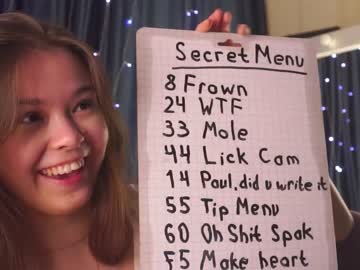 Secret Menu
8 Frown
24 WTF
33 Mole
44 Lick Cam
14 Paul, did u write it
55 Tip Menu
60 Oh Shit Spak
F5 Make heart